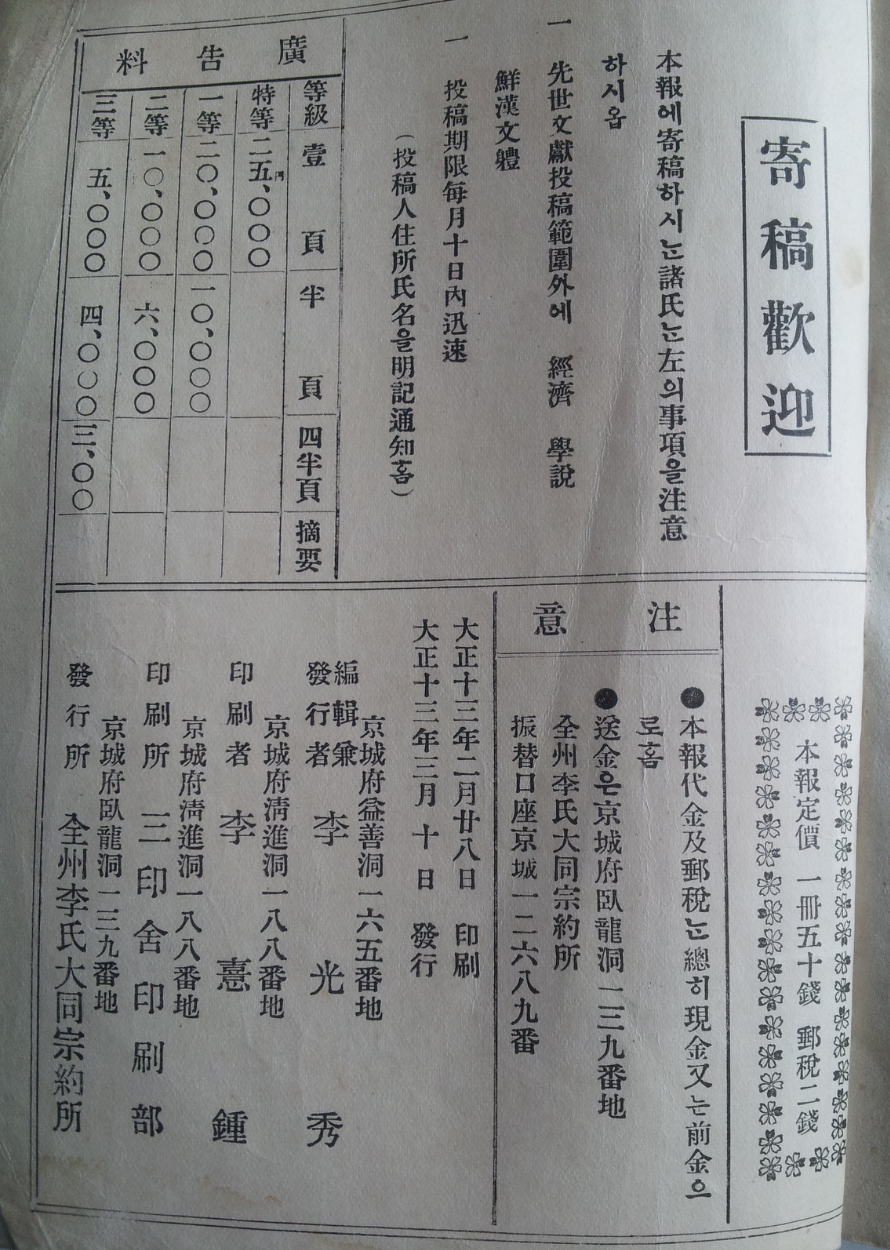 寄稿歡迎
本報에寄稿하시는諸氏는左의事項을注意
하시옵
一 先世文獻投稿範圍外에 經濟 學說
鮮漢文軆
一 投稿期限每月十日內迅速
(投稿人住所氏名을明記通知홈)
廣告料
等級 壹頁 半頁 四半頁 摘要
特等 二五、〇〇〇
一等 二〇、〇〇〇 一〇、〇〇〇
二等 一〇、〇〇〇 六、〇〇〇
三等 五、〇〇〇 四、〇〇〇 三、〇〇
本報定價 一冊五十錢 郵稅二錢
注意
●本報代金及郵稅는總히現金又는前金으
로홈
●送金은京城府臥龍洞一三九番地
全州李氏大同宗約所
振替口座京城一二六八九番
大正十三年二月廿八日 印刷
大正十三年三月十日 發行
京城府益善洞一六五番地
編輯兼
發行者 李光秀
京城府淸進洞一八八番地
印刷者 李憙鍾
京城府淸進洞一八八番地
印刷所 三印舍印刷部
京城府臥龍洞一三九番地
發行所 全州李氏大同宗約所